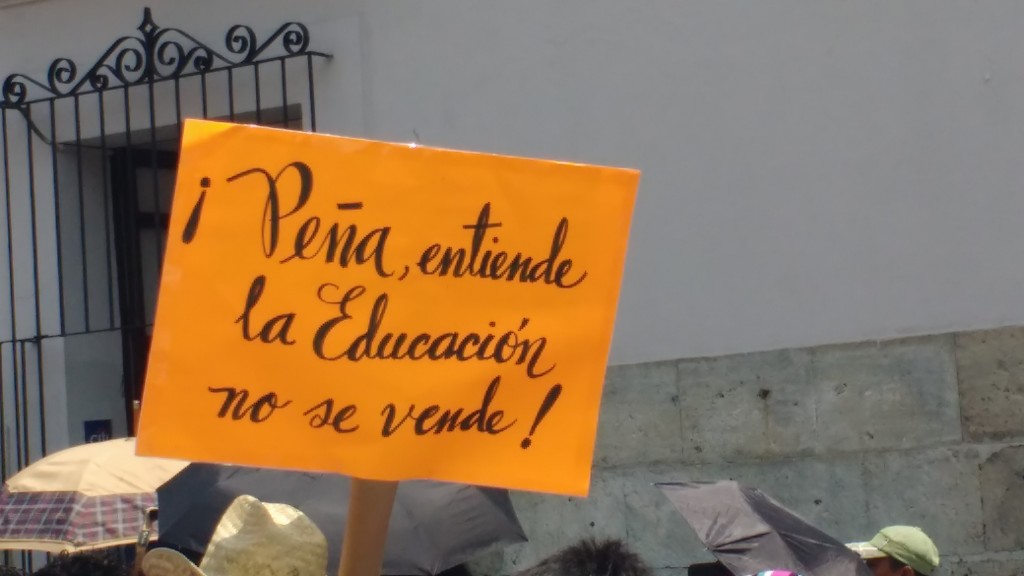 ¡Peña, entiende
la Educación
no se vende!